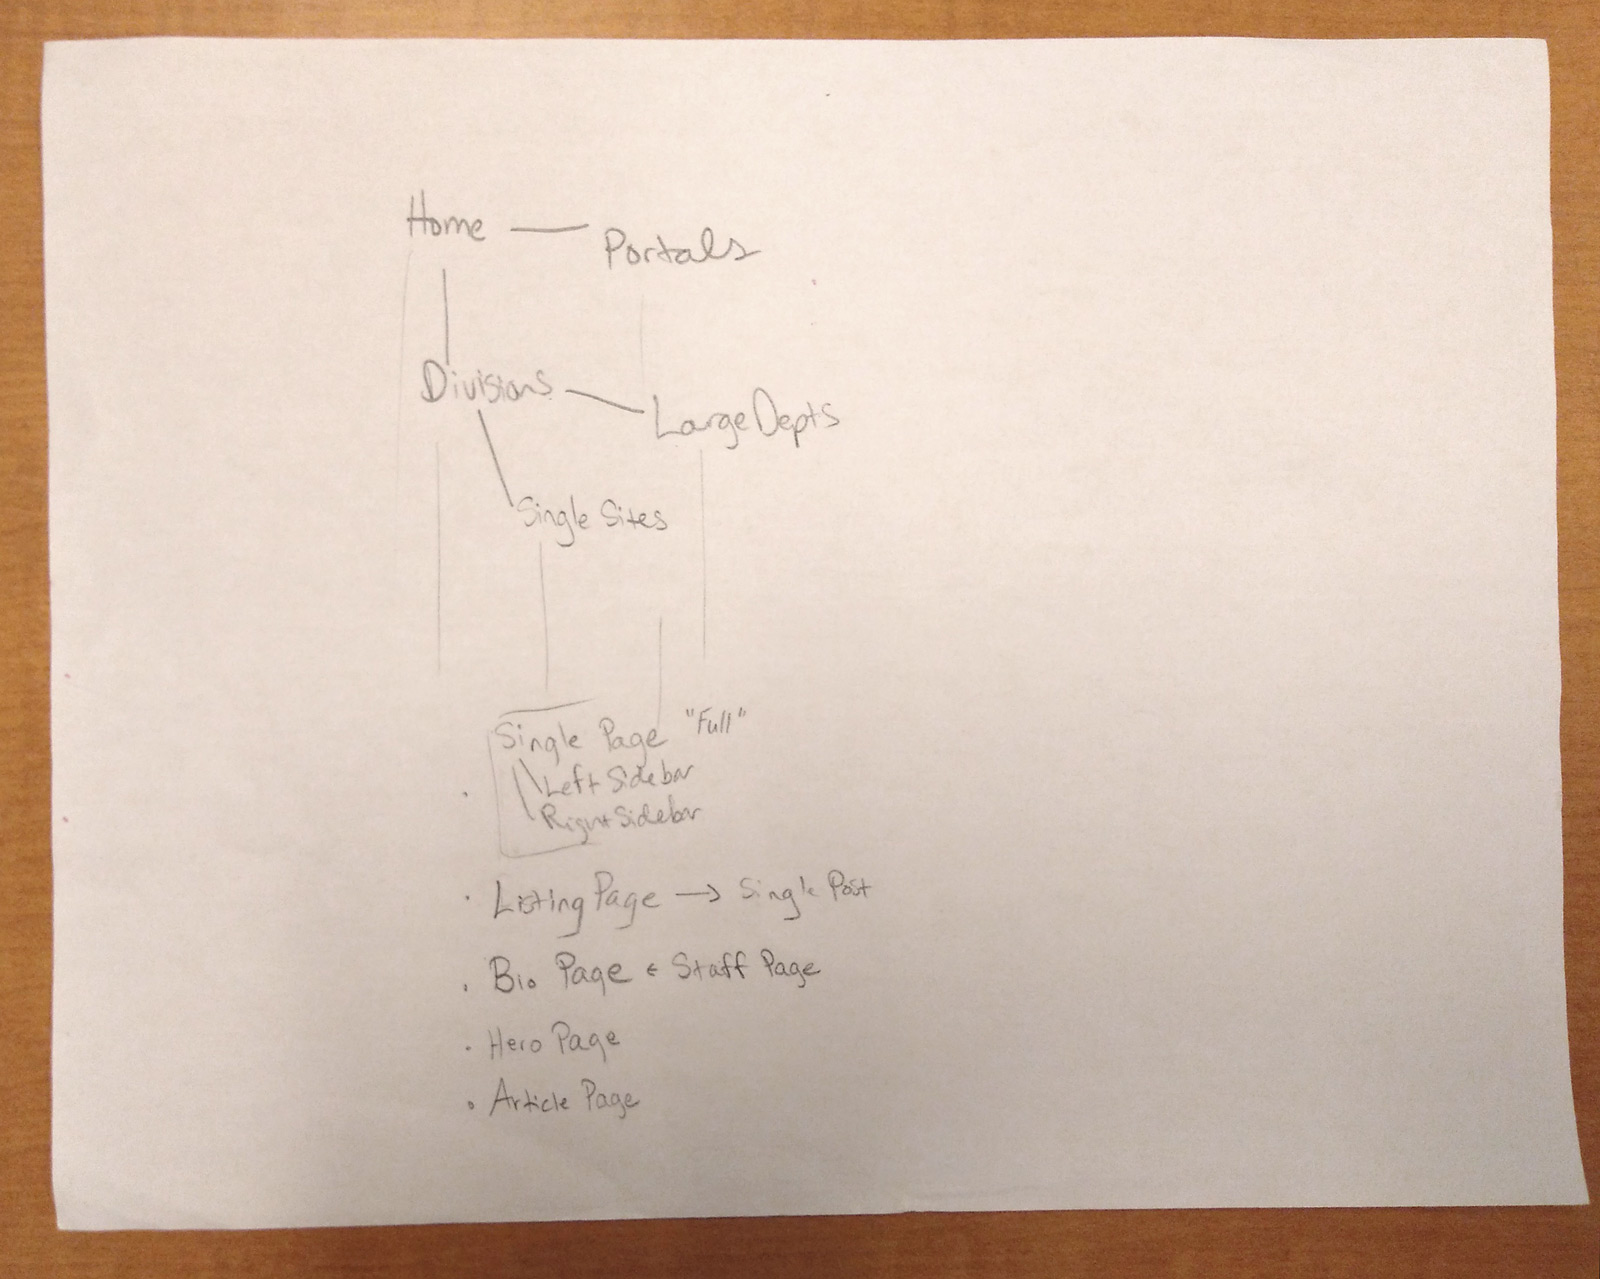 Home — Portals
Divisions — Large Depts
Single Sites
Single Page "Full"
Left Sidebar
Right Sidebar
· Listing Page → Single Post
· Bio Page ← Staff Page
· Hero Page
· Article Page